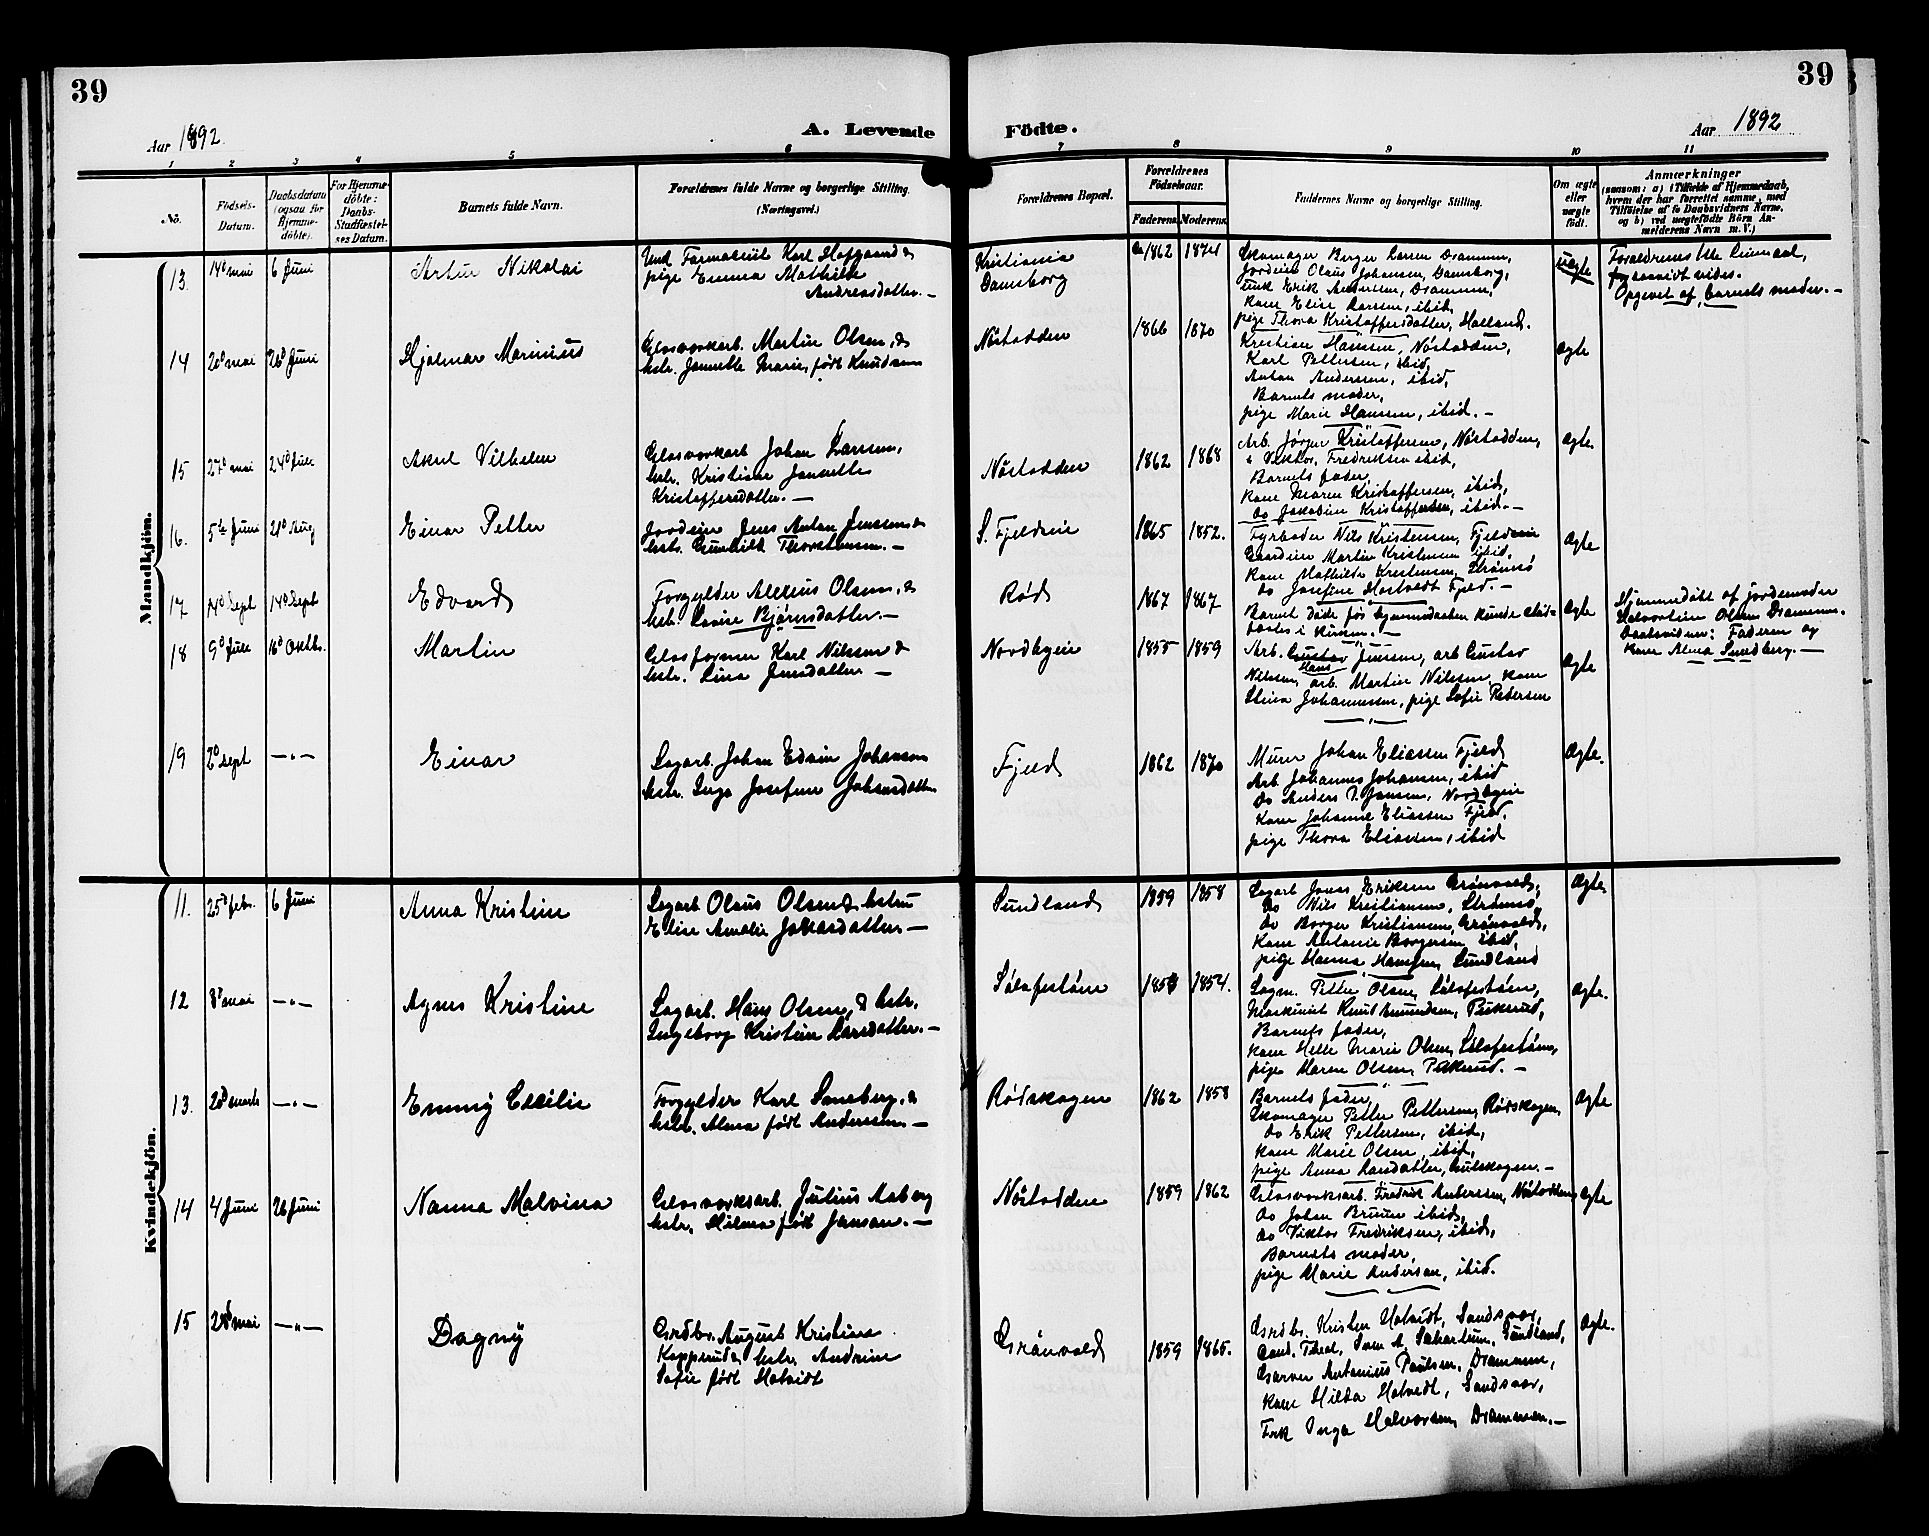 39
39
Aar 1892
A. Levende
Födte.
Aar 1892
1
2
3
4
5
6
7
8
9
10
11
No.
Födsels-
Datum.
Daabsdatum
(ogsaa for
Hjemme-
döbte).
For Hjemme-
döbte:
Daabs-
Stadfæstel-
ses Datum.
Barnets fulde Navn.
Forældrenes fulde Navne og borgerlige Stilling.
(Næringsvei.)
Forældrenes Bopæl.
Forældrenes
Födselsaar.
Faderens.
Moderens.
Faddernes Navne og borgerlige Stilling.
Om ægte
eller
uægte
födt.
Anmærkninger
(saasom: a) i Tilfælde af Hjemmedaab,
hvem der har forrettet samme, med
Tilföielse af to Daabsvidners Navne,
og b) ved uægtefödte Börn An-
melderens Navn m. V.)
Mandkjön.
13.
14d mai
6 Juni
Artur Nikolai
Unk Farmaceut Karl Hofgaard &
pige Emma Mathilde
Andreasdatter. —
Kristiania
Damsborg
ca 1862
1874
Skomager Berger Larsen Drammen,
Jordeier Olaus Johansen, Damsborg,
Unk Erik Andersen, Drammen,
Kone Elise Larsen, ibid,
pige Thora Kristoffersdatter, Holland.
uægte
Forældrenes 1ste Leiermaal,
saavidt vides.
Opgivet af barnets moder. —
14
20d mai
26d Juni
Hjalmar Marinius
Glasværkarb. Martin Olsen, &
hstr. Jannette Marie, født Knudsen
Nöstodden
1866
1870
Kristian Hansen, Nöstodden,
Karl Pettersen, ibid,
Anton Andersen, ibid,
Barnets moder,
pige Marie Hansen, ibid. —
Ægte
15
27d mai
24d Juli
Aksel Vilhelm
Glasværkarb Johan Larsen,
hstr. Kristine Jannette
Kristoffersdatter. —
Nöstodden
1862
1868
Arb. Jörgen Kristoffersen, Nöstodden,
" Viktor Fredriksen ibid,
Barnets fader,
Kone Maren Kristoffersen, ibid,
do Jakobine Kristoffersen, ibid. —
Ægte.
16.
5te Juni
21d Aug
Einar Petter
Jordeier Jens Anton Jenssen &
hstr. Gunhild Thorstensen. —
S. Fjeldeie
1865
1852.
Fyrböder Nils Kristensen, Fjeldeie
Gaardeier Martin Kristensen ibid,
Kone Mathilde Kristensen, Strömsö
do Josefine Hostvedt Fjeld. —
Ægte
17
14d Sept
14d Sept
Edvard
Forgylder Alexius Olsen, &
hstr. Lovise Bjørnsdatter. —
Röd
1867
1867
Barnet døde før hjemmedaaben kunde stad-
fæstes i kirken. —
Ægte
Hjemmedöbt af jordemoder
Halvorline Olsen Drammen.
Daabsvidner: Faderen og
Kone Alma Sundberg. —
18
9d Juli
16d Oktbr.
Martin
Glasformer Karl Nilssen &
hstr. Lina Jensdatter —
Nordbyeie
1855
1859
Arb. Gustav Hans Jenssen, arb Gustav
Nilssen, arb. Martin Nilssen, Kone
Stina Johannessen, pige Sofie Pedersen
Ægte
19
2d Sept
— " —
Einar
Sagarb. Johan Edvin Johanson
hstr. Inga Josefine Johansdatter
Fjeld
1862
1870
Murer Johan Eliassen Fjeld
Arb Johannes Johansen, ibid
do Anders J. Jansen, Nordbyeie
Kone Johanne Eliassen Fjeld,
pige Thora Eliassen, ibid
Ægte.
Kvindekjön.
11.
25d febr.
6 Juni
Anna Kristine
Sagarb Olaus Olsen & hstru
Elise Amalie Johansdatter —
Sundland
1859
1858
Sagarb Jonas Eriksen Grönvold,
do Nils Kristiansen, Strömsö,
do Borger Kristiansen, Grönvold,
Kone Antonie Borgersen ibid,
pige Hanna Hansen, Sundland
Ægte
12
8d mai
— " —
Agnes Kristine
Sagarb. Hans Olsen, & hstr.
Ingeborg Kristine Larsdatter. —
Sölofestöen
1858
1854.
Sagm. Petter Olsen, Sölofestöen,
Maskinist Knut Amundsen, Pukerud,
Barnets fader,
Kone Helle Marie Olsen, Sölofestöen,
pige Maren Olsen, Pukerud. —
Ægte.
13.
20d marts
— " —
Emmy Cecilie
Forgylder Karl Sandberg, &
hstr. Alma født Andersen. —
Rödskogen
1862
1858
Barnets fader,
Skomager Petter Pettersen, Rödskogen,
do Erik Pettersen, ibid,
Kone Marie Olsen, ibid,
pige Anna Larsdatter, Gulskogen. —
Ægte
14
4 Juni
26 Juni
Nanna Malvina
Glasværksarb. Julius Aaberg
hstr. Hilma født Jansen. —
Nöstodden
1859
1862
Glasværksarb. Fredrik Andersen, Nöstodden,
do Johan Bruun ibid,
do Viktor Fredriksen, ibid,
Barnets moder,
pige Marie Andersen, ibid.
Ægte
15
28 mai
— " —
Dagny
Grdbr. August Kristian
Kopperud & hstr. Andrine
Sofie født Hotvedt
Grönvold
1859
1865.
Grdbr. Kristen Hotvedt, Sandsvær,
Cand. Theol. Sven A. Sakariassen, Sundland,
Garver Antonius Paulsen, Drammen,
Kone Hilda Hotvedt, Sandsvær,
Frk Inga Halvorsen, Drammen. —
Ægte.